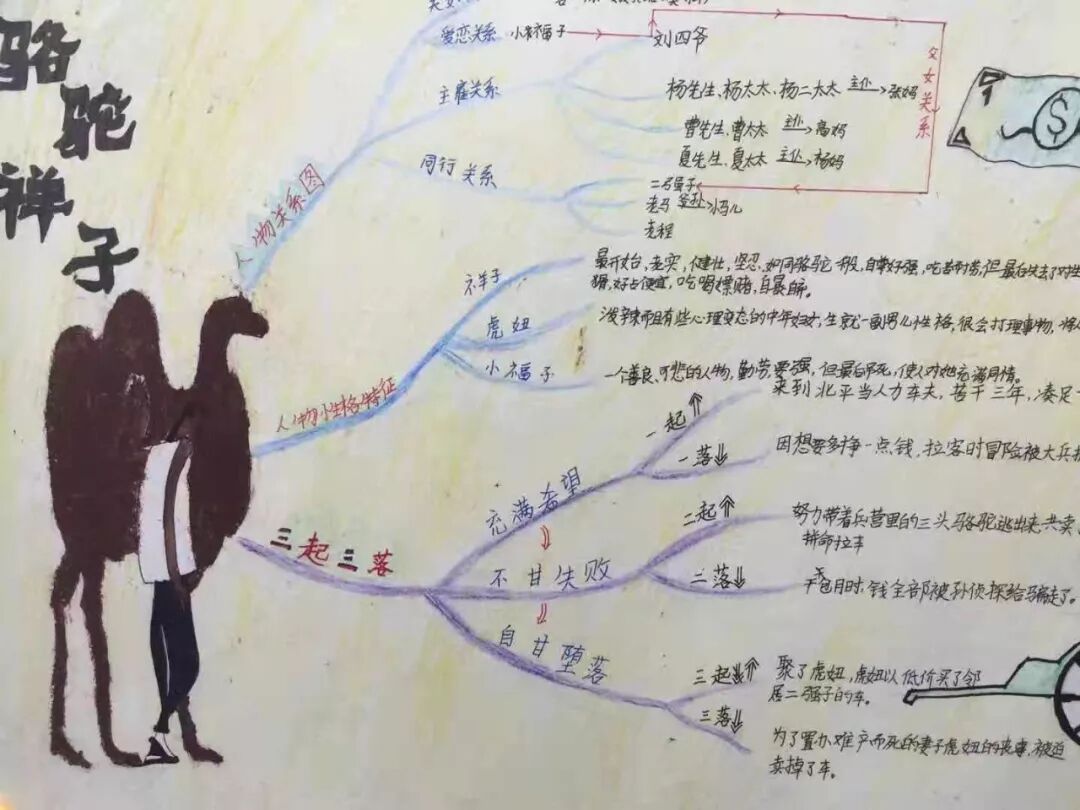 骆驼祥子
爱恋关系 小福子
刘四爷
父女关系
主雇关系
杨先生、杨太太、杨二太太 主仆 张妈
曹先生、曹太太 主仆 高妈
夏先生、夏太太 主仆 杨妈
同行关系
二强子
老马 爷孙 小马儿
老程
人物关系图
祥子
最开始,老实,健壮,坚忍,如同骆驼一般,自尊好强,吃苦耐劳,但最后失去了对生
猾,好占便宜,吃喝嫖赌,自暴自弃。
虎妞
泼辣而且有些心理变态的中年妇女,生就一副男儿性格,很会打理事物,
小福子
一个善良、可悲的人物,勤劳,要强,但最后吊死,使人对她充满同情。
人物性格特征
三起三落
充满希望
一起
来到北平当人力车夫,苦干三年,凑足一
一落
因想要多挣一点钱,拉客时冒险被大兵
不甘失败
二起
努力带着兵营里的三头骆驼逃出来,共卖
拼命拉车
二落
干包月时,钱全部被孙侦探给骗走了。
自甘堕落
三起
聚了虎妞,虎妞以低价买了邻
居二强子的车。
三落
为了置办难产而死的妻子虎妞的丧事,被迫
卖掉了车。